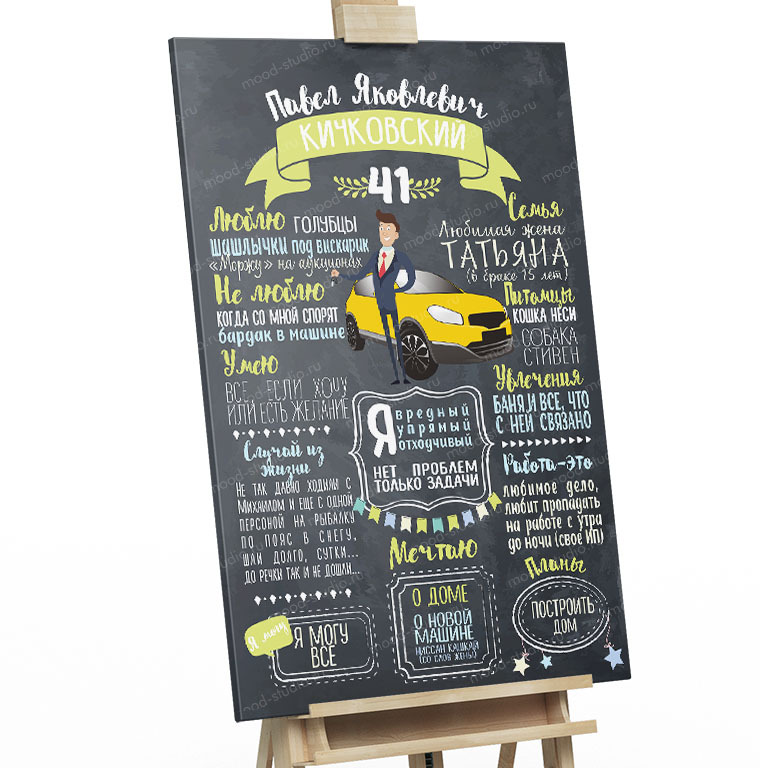 Павел Яковлевич
КИЧКОВСКИЙ
41
Люблю ГОЛУБЦЫ
ШАШЛЫЧКИ ПОД ВИСКАРИК
«Моржу» на аукционах
Не люблю
КОГДА СО МНОЙ СПОРЯТ
бардак в машине
Умею
ВСЕ, ЕСЛИ ХОЧУ
ИЛИ ЕСТЬ ЖЕЛАНИЕ
Случай из
жизни
Не так давно ходили с
Михаилом и еще с одной
персоной на рыбалку
по пояс в снегу,
шли долго, сутки...
до речки так и не дошли...
Я могу
Я МОГУ
ВСЕ
Я вредный
упрямый
отходчивый
НЕТ ПРОБЛЕМ
ТОЛЬКО ЗАДАЧИ
Мечтаю
О ДОМЕ
О НОВОЙ
МАШИНЕ
НИССАН КАШКАЙ
(СО СЛОВ ЖЕНЫ)
Семья
Любимая жена
ТАТЬЯНА
(в браке 15 лет)
Питомцы
КОШКА НЕСИ
СОБАКА
СТИВЕН
Увлечения
БАНЯ И ВСЕ, ЧТО
С НЕЙ СВЯЗАНО
Работа-это
любимое дело,
любит пропадать
на работе с утра
до ночи (свое ИП)
Планы
ПОСТРОИТЬ
ДОМ
mood-studio.ru